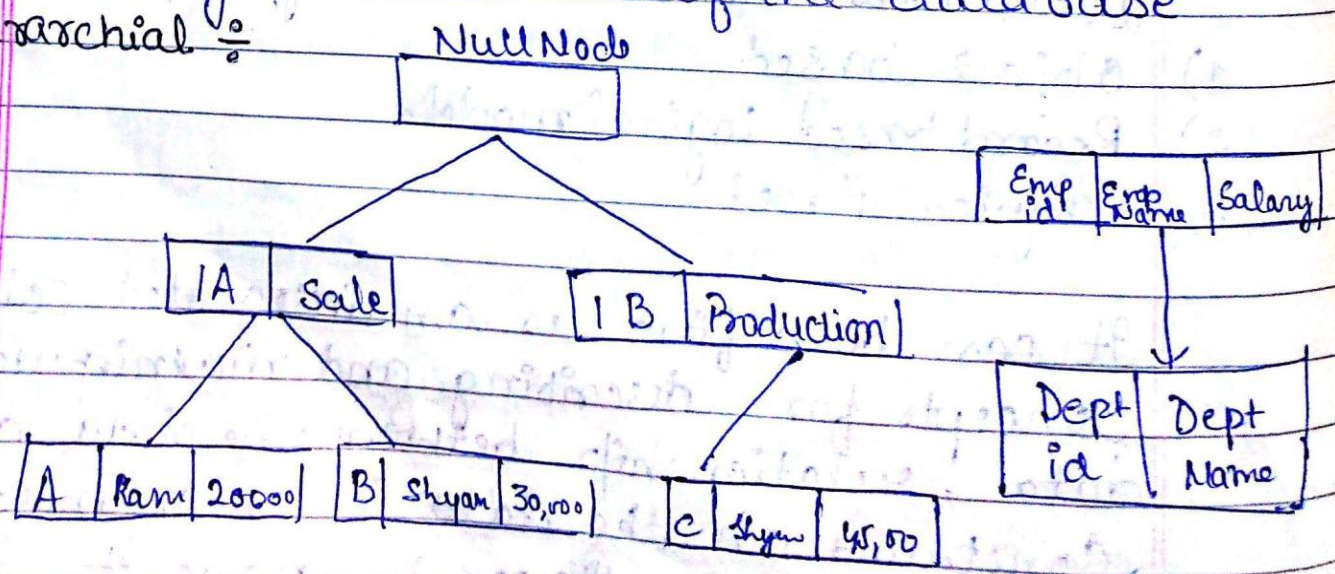 of the database
rarchial :-
Null Node
Emp id | Emp Name | Salary
1A | Sale
1B | Production
Dept id | Dept Name
A | Ram | 20000
B | Shyam | 30,000
C | Shyam | 45,00